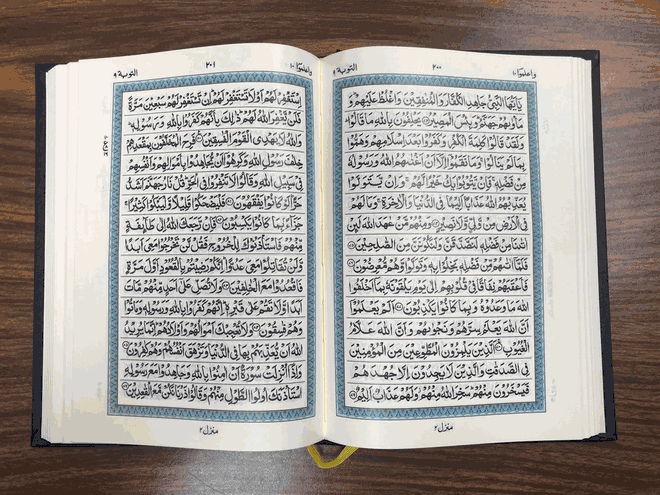 واعلموا ١٠
٢٠٠
التوبة ٩
يٰۤاَيُّهَا النَّبِىُّ جَاهِدِ الْكُفَّارَ وَالْمُنٰفِقِيْنَ وَاغْلُظْ عَلَيْهِمْ ؕ وَ
مَاْوٰىهُمْ جَهَنَّمُ ؕ وَبِئْسَ الْمَصِيْرُ ﴿٧٣﴾ يَحْلِفُوْنَ بِاللّٰهِ مَا قَالُوْا ؕ
وَلَقَدْ قَالُوْا كَلِمَةَ الْكُفْرِ وَكَفَرُوْا بَعْدَ اِسْلَامِهِمْ وَهَمُّوْا
بِمَا لَمْ يَنَالُوْا ۚ وَمَا نَقَمُوْۤا اِلَّاۤ اَنْ اَغْنٰهُمُ اللّٰهُ وَرَسُوْلُهٗ
مِنْ فَضْلِهٖ ۚ فَاِنْ يَّتُوْبُوْا يَكُ خَيْرًا لَّهُمْ ۚ وَاِنْ يَّتَوَلَّوْا
يُعَذِّبْهُمُ اللّٰهُ عَذَابًا اَلِيْمًا فِى الدُّنْيَا وَالْاٰخِرَةِ ۚ وَمَا لَهُمْ
فِى الْاَرْضِ مِنْ وَّلِىٍّ وَّلَا نَصِيْرٍ ﴿٧٤﴾ وَمِنْهُمْ مَّنْ عٰهَدَ اللّٰهَ لَئِنْ
اٰتٰىنَا مِنْ فَضْلِهٖ لَنَصَّدَّقَنَّ وَلَنَكُوْنَنَّ مِنَ الصّٰلِحِيْنَ ﴿٧٥﴾
فَلَمَّاۤ اٰتٰىهُمْ مِّنْ فَضْلِهٖ بَخِلُوْا بِهٖ وَتَوَلَّوْا وَّهُمْ مُّعْرِضُوْنَ ﴿٧٦﴾
فَاَعْقَبَهُمْ نِفَاقًا فِىْ قُلُوْبِهِمْ اِلٰى يَوْمِ يَلْقَوْنَهٗ بِمَاۤ اَخْلَفُوا
اللّٰهَ مَا وَعَدُوْهُ وَبِمَا كَانُوْا يَكْذِبُوْنَ ﴿٧٧﴾ اَلَمْ يَعْلَمُوْۤا
اَنَّ اللّٰهَ يَعْلَمُ سِرَّهُمْ وَنَجْوٰىهُمْ وَاَنَّ اللّٰهَ عَلَّامُ
الْغُيُوْبِ ﴿٧٨﴾ اَلَّذِيْنَ يَلْمِزُوْنَ الْمُطَّوِّعِيْنَ مِنَ الْمُؤْمِنِيْنَ
فِى الصَّدَقٰتِ وَالَّذِيْنَ لَا يَجِدُوْنَ اِلَّا جُهْدَهُمْ
فَيَسْخَرُوْنَ مِنْهُمْ ؕ سَخِرَ اللّٰهُ مِنْهُمْ ؗ وَلَهُمْ عَذَابٌ اَلِيْمٌ ﴿٧٩﴾
منزل ٢
واعلموا ١٠
٢٠١
التوبة ٩
اِسْتَغْفِرْ لَهُمْ اَوْ لَا تَسْتَغْفِرْ لَهُمْ ؕ اِنْ تَسْتَغْفِرْ لَهُمْ سَبْعِيْنَ مَرَّةً
فَلَنْ يَّغْفِرَ اللّٰهُ لَهُمْ ؕ ذٰلِكَ بِاَنَّهُمْ كَفَرُوْا بِاللّٰهِ وَرَسُوْلِهٖ ؕ
وَاللّٰهُ لَا يَهْدِى الْقَوْمَ الْفٰسِقِيْنَ ﴿٨٠﴾ فَرِحَ الْمُخَلَّفُوْنَ بِمَقْعَدِهِمْ
خِلٰفَ رَسُوْلِ اللّٰهِ وَكَرِهُوْۤا اَنْ يُّجَاهِدُوْا بِاَمْوَالِهِمْ وَاَنْفُسِهِمْ
فِىْ سَبِيْلِ اللّٰهِ وَقَالُوْا لَا تَنْفِرُوْا فِى الْحَرِّ ؕ قُلْ نَارُ جَهَنَّمَ اَشَدُّ
حَرًّا ؕ لَوْ كَانُوْا يَفْقَهُوْنَ ﴿٨١﴾ فَلْيَضْحَكُوْا قَلِيْلًا وَّلْيَبْكُوْا كَثِيْرًا ۚ
جَزَآءًۢ بِمَا كَانُوْا يَكْسِبُوْنَ ﴿٨٢﴾ فَاِنْ رَّجَعَكَ اللّٰهُ اِلٰى طَآئِفَةٍ
مِّنْهُمْ فَاسْتَاْذَنُوْكَ لِلْخُرُوْجِ فَقُلْ لَّنْ تَخْرُجُوْا مَعِىَ اَبَدًا
وَّلَنْ تُقَاتِلُوْا مَعِىَ عَدُوًّا ؕ اِنَّكُمْ رَضِيْتُمْ بِالْقُعُوْدِ اَوَّلَ مَرَّةٍ
فَاقْعُدُوْا مَعَ الْخٰلِفِيْنَ ﴿٨٣﴾ وَلَا تُصَلِّ عَلٰۤى اَحَدٍ مِّنْهُمْ مَّاتَ
اَبَدًا وَّلَا تَقُمْ عَلٰى قَبْرِهٖ ؕ اِنَّهُمْ كَفَرُوْا بِاللّٰهِ وَرَسُوْلِهٖ وَمَاتُوْا
وَهُمْ فٰسِقُوْنَ ﴿٨٤﴾ وَلَا تُعْجِبْكَ اَمْوَالُهُمْ وَاَوْلَادُهُمْ ؕ اِنَّمَا يُرِيْدُ
اللّٰهُ اَنْ يُّعَذِّبَهُمْ بِهَا فِى الدُّنْيَا وَتَزْهَقَ اَنْفُسُهُمْ وَهُمْ كٰفِرُوْنَ ﴿٨٥﴾
وَاِذَاۤ اُنْزِلَتْ سُوْرَةٌ اَنْ اٰمِنُوْا بِاللّٰهِ وَجَاهِدُوْا مَعَ رَسُوْلِهِ
اسْتَاْذَنَكَ اُولُوا الطَّوْلِ مِنْهُمْ وَقَالُوْا ذَرْنَا نَكُنْ مَّعَ الْقٰعِدِيْنَ ﴿٨٦﴾
منزل ٢